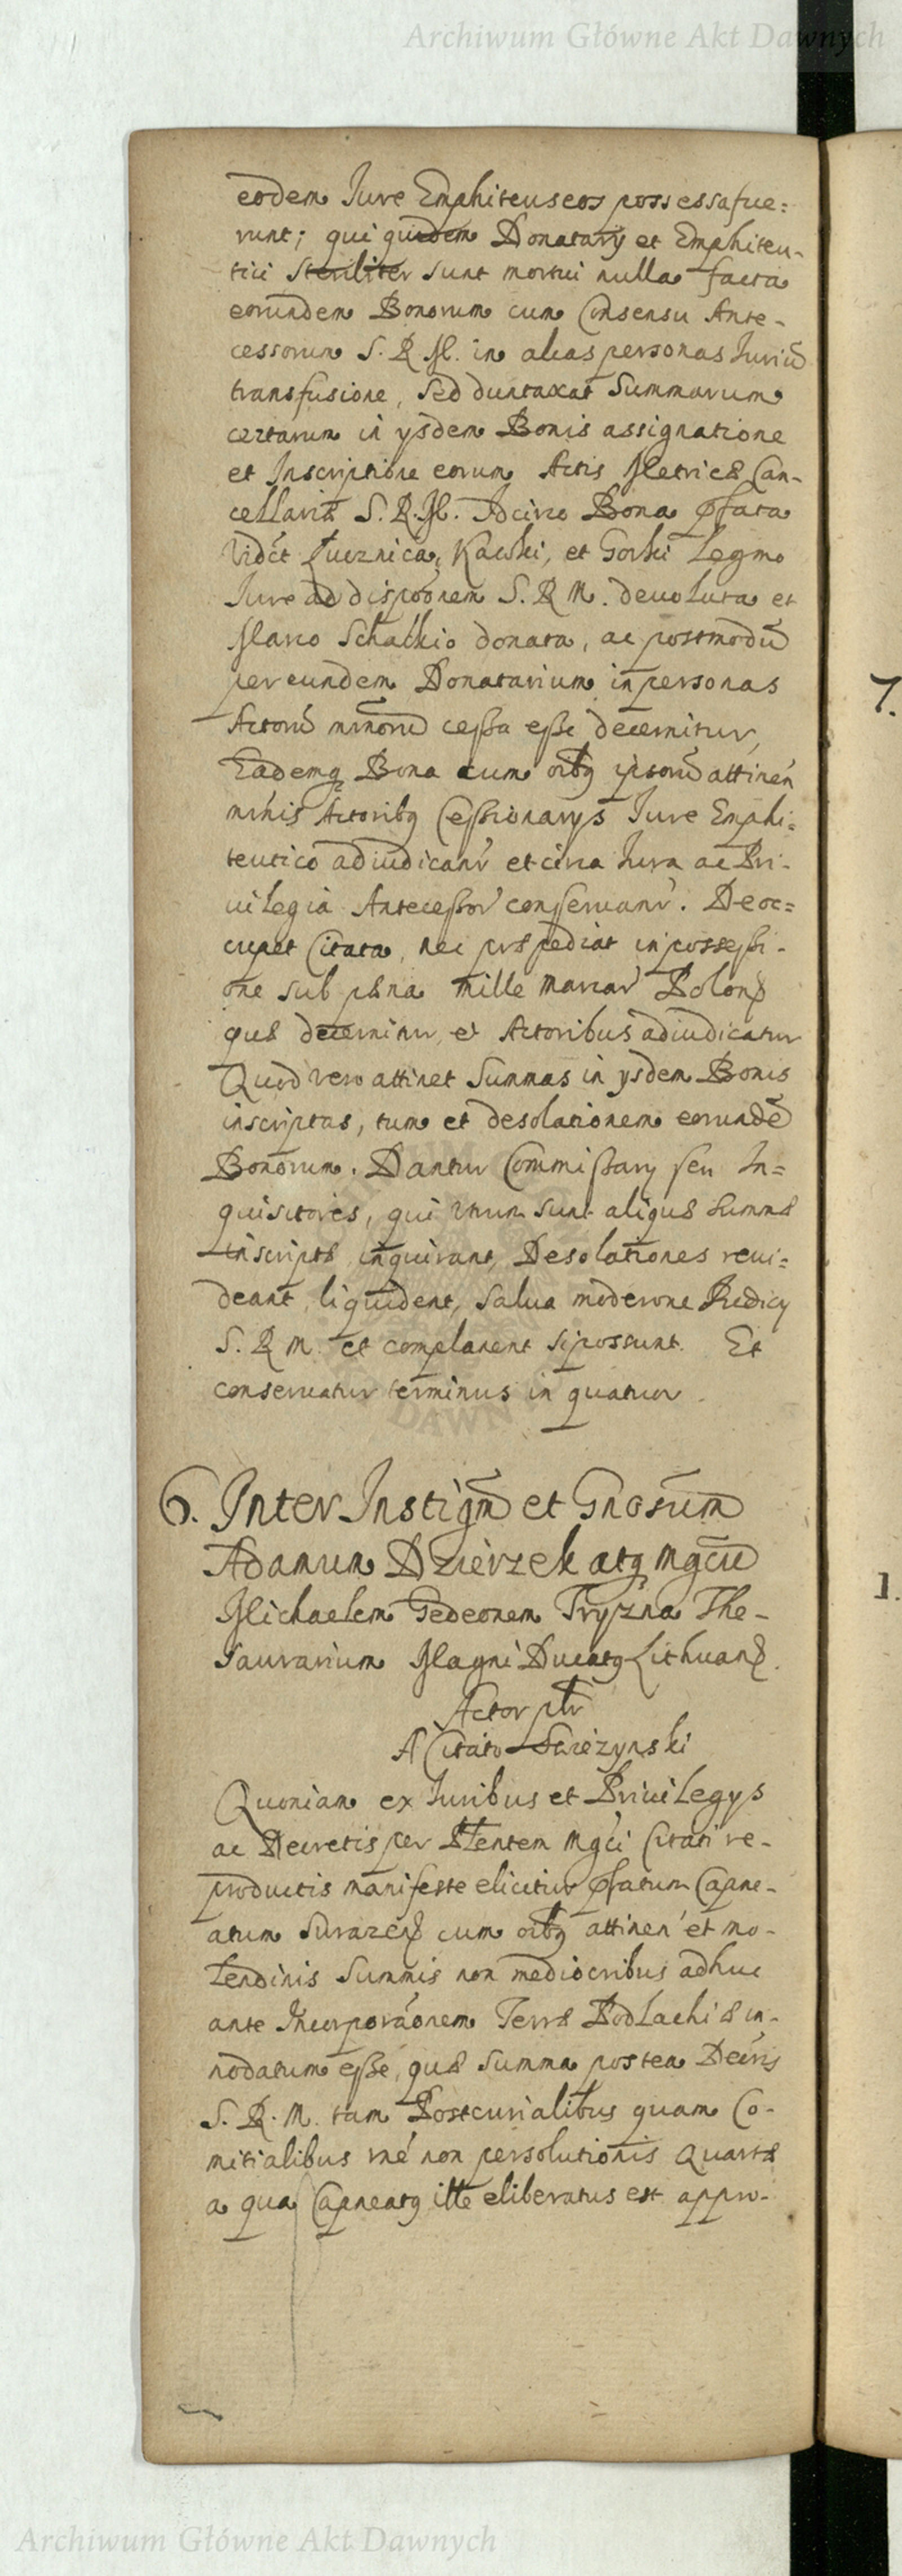 Archiwum Główne Akt Dawnych
eodem Iure Emphiteuseos possessa fue:
runt; qui quidem Donatarÿ et Emphiteu-
tici steriliter sunt mortui nulla facta
eorundem Bonorum cum Consensu Ante-
cessorum S. R M. in alias personas Iuriū
transfusione, sed duntaxat Summarum
certarum in ysdem Bonis assignatione
et Inscriptione eorum Actis Metricæ Can-
cellariæ S. R. M. Idcirco Bona pfata
vidct Kawki, et Gorki Legmo
Iure ad dispoõnem S. R M. deuoluta et
donata, ac postmodū
per eundem Donatarium in personas
Actorū mnorū cessa esse decernitur,
Eademq Bona cum oibq ipsorū attinen
mnis Actoribq Cessionarys Iure Emphi:
teutico adiudicanr et circa Iura ac Pri-
uilegia Antecessor conseruanr. Deoc=
cupet Citata, nec præpediat in possessi-
one sub pæna mille marcar Polon
quæ decernitur, et Actoribus adiudicatur
Quod vero attinet Summas in ysdem Bonis
inscriptas, tum et desolationem eorundē
Bonorum. Dantur Commissary seu In=
quisitores, qui vtrum sunt aliquæ Summæ
inscriptæ inquirant, Desolationes reui=
deant, liquident, salua moderone Predicy
S. R M. et complanent si possunt. Et
conseruatur terminus in quatuor.
6. Inter Instigm et Gnosum
Adamum Dzierzek atq mgcū
Michaelem Gedeonem Tryzna The-
saurarium Magni Ducatq Lithuan.
Actor ptr
A Citato Swiezynski
Quoniam ex Iuribus et Priuilegys
ac Decretis per Ptentem mgci Citati re-
productis manifeste elicitur pfatum Capne-
atum Surazen cum oibq attinen et mo-
lendinis Summis non mediocribus adhuc
ante Incorporaonem Terræ Podlachiæ in-
nodatum esse, quæ Summa postea Decris
S. R. M. tam Postcurialibus quam Co-
mitialibus rné non persolutionis Quartæ
a qua Capneatq ille eliberatus est appro-
7.
1.
Archiwum Główne Akt Dawnych